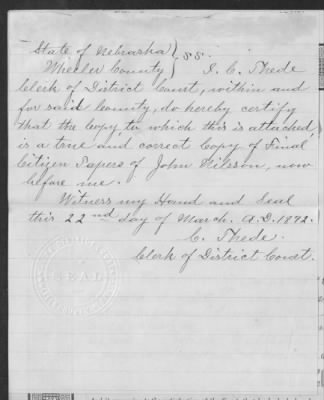 State of Nebraska } SS.
Wheeler County } I, C. Thede
Clerk of District Court, within and
for said County, do hereby certify
that the Copy, to which this is attached,
is a true and correct Copy of Final
Citizen Papers of John Nilsson, now
before me.
Witness my Hand and Seal
this 22nd day of March. A.D. 1892.
C. Thede.
Clerk of District Court.
SEAL